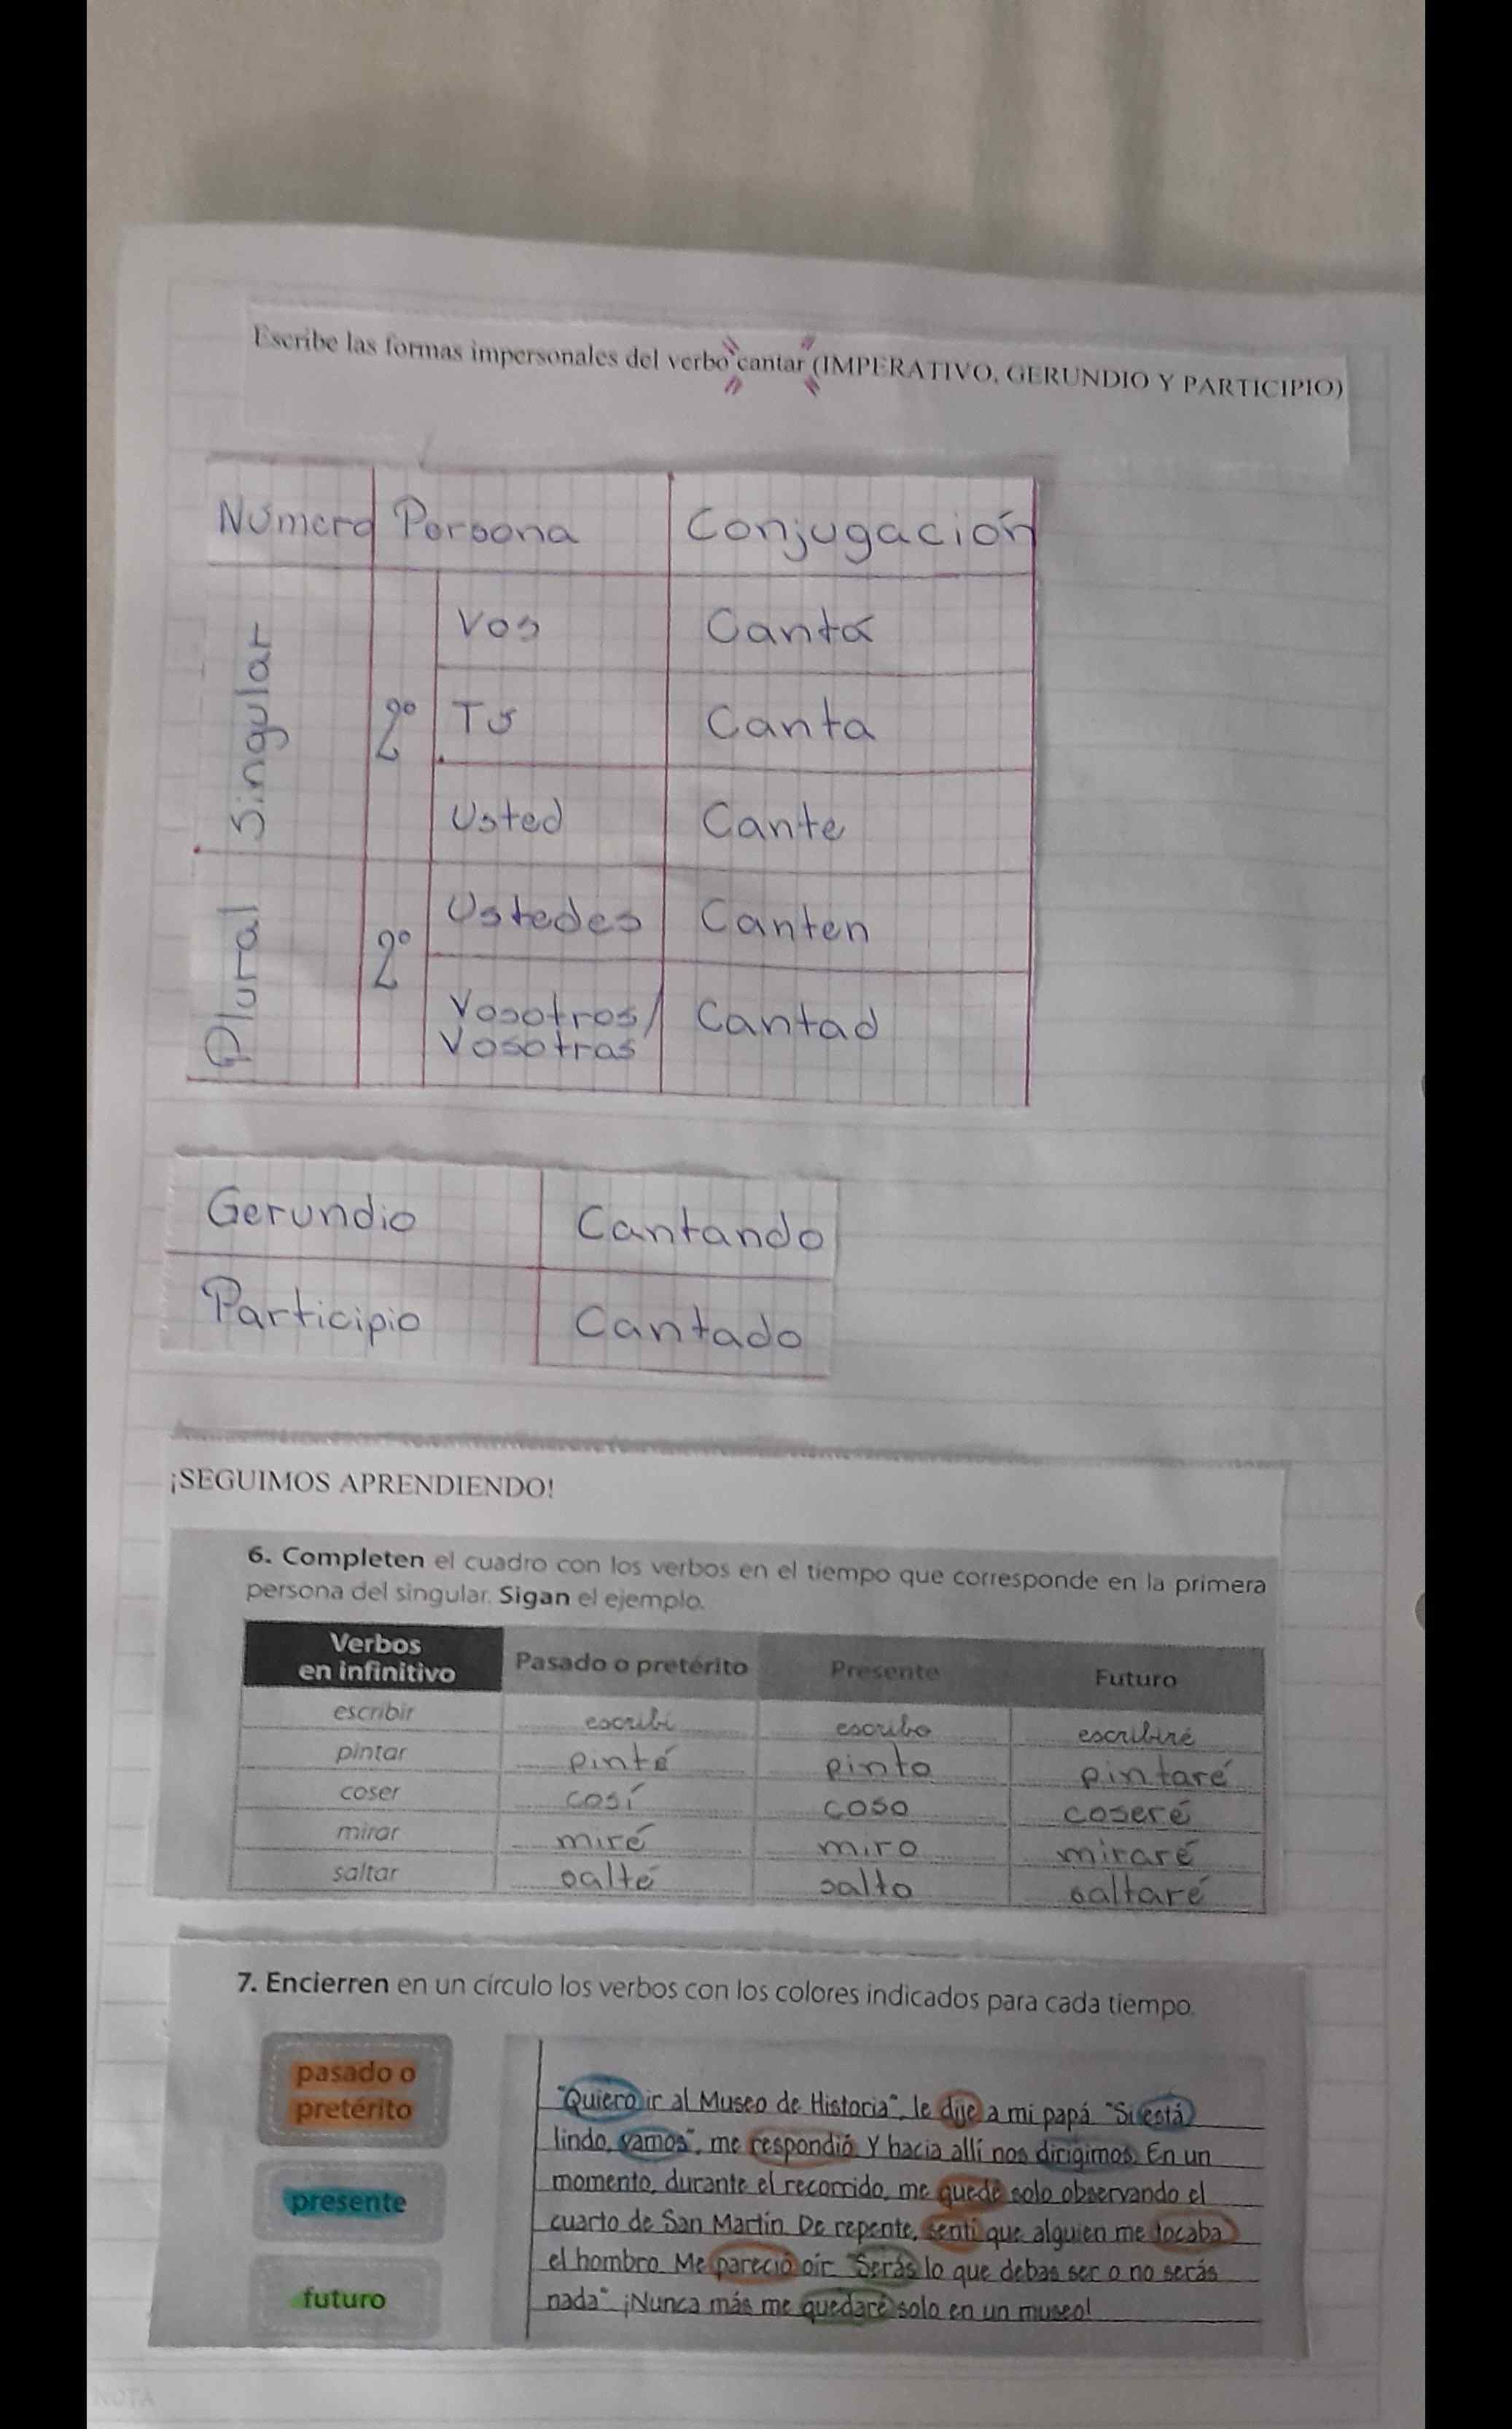 Escribe las formas impersonales del verbo "cantar" (IMPERATIVO, GERUNDIO Y PARTICIPIO)
Número Persona Conjugación
Singular 2º Vos Cantá
Tú Canta
Usted Cante
Plural 2º Ustedes Canten
Vosotros/ Cantad
Vosotras
Gerundio Cantando
Participio Cantado
¡SEGUIMOS APRENDIENDO!
6. Completen el cuadro con los verbos en el tiempo que corresponde en la primera
persona del singular. Sigan el ejemplo.
Verbos
en infinitivo Pasado o pretérito Presente Futuro
escribir escribí escribo escribiré
pintar pinté pinto pintaré
coser cosí coso coseré
mirar miré miro miraré
saltar salté salto saltaré
7. Encierren en un círculo los verbos con los colores indicados para cada tiempo.
pasado o
pretérito
presente
futuro
"Quiero ir al Museo de Historia", le dije a mi papá. "Si está
lindo, vamos", me respondió. Y hacia allí nos dirigimos. En un
momento, durante el recorrido, me quedé solo observando el
cuarto de San Martín. De repente, sentí que alguien me tocaba
el hombro. Me pareció oír: "Serás lo que debas ser o no serás
nada". ¡Nunca más me quedaré solo en un museo!
NOTA